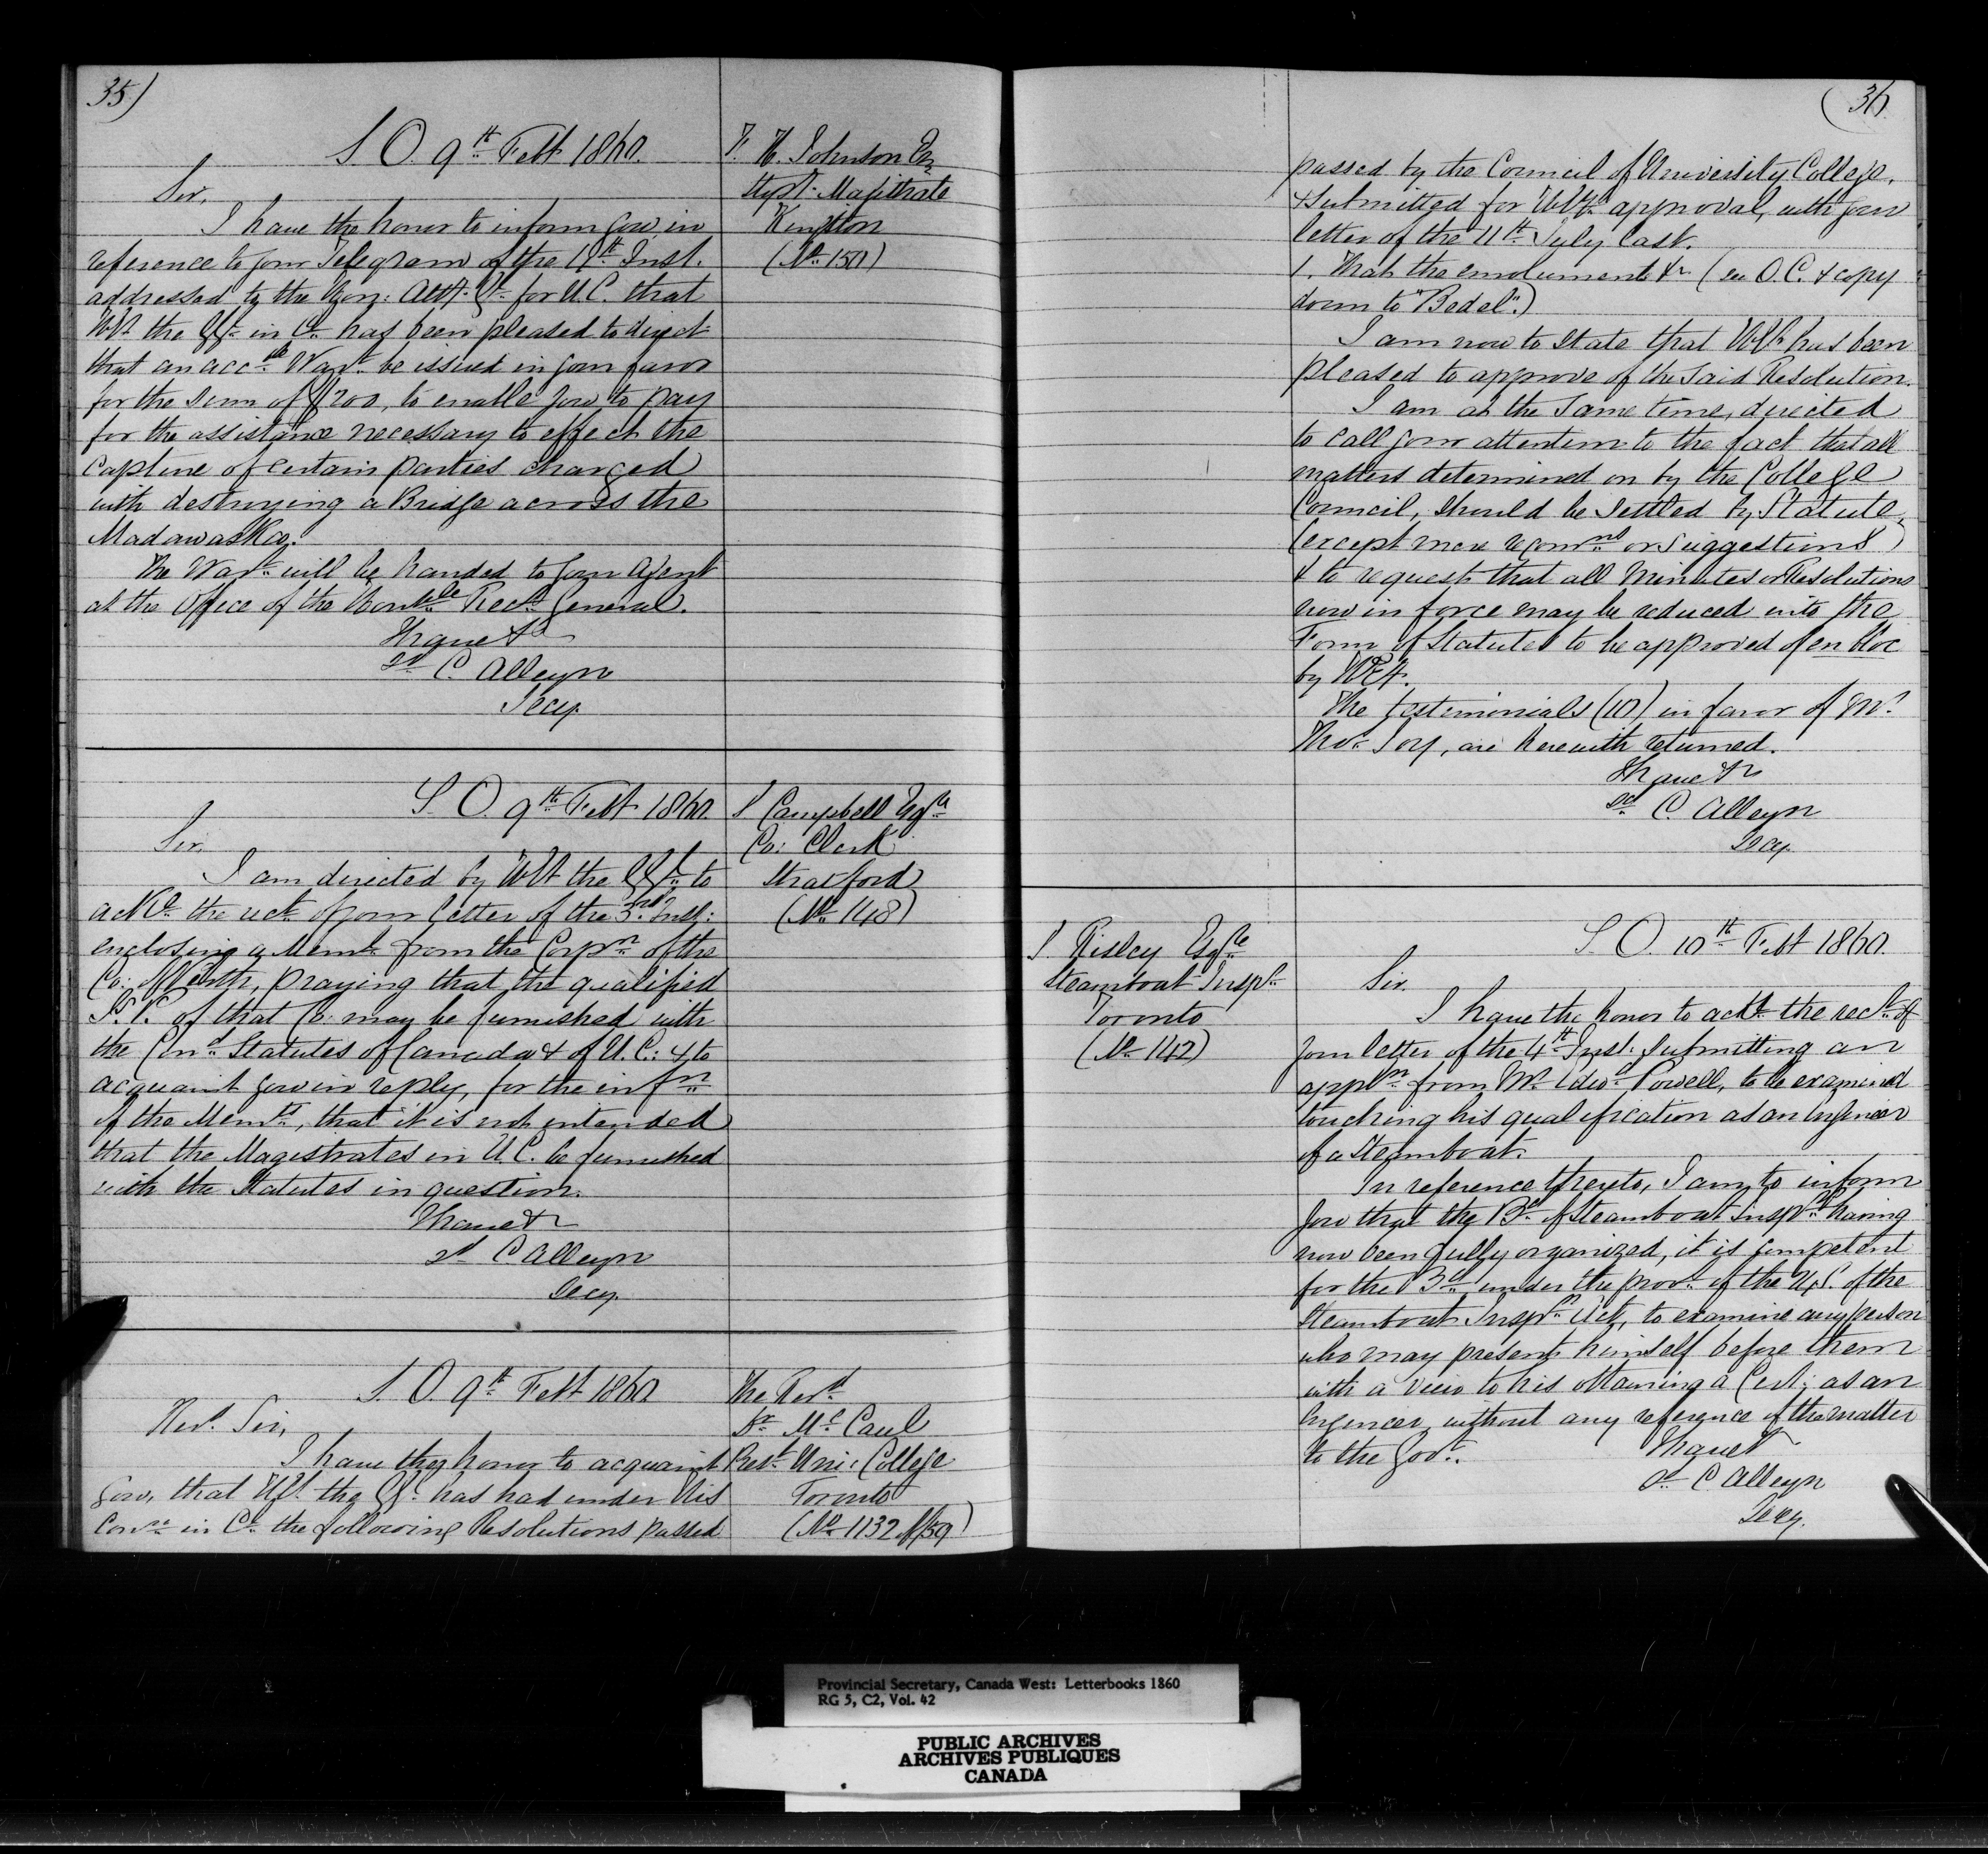 35)
S. O. 9th Feb 1860.
T. H. Johnson Esq
Stypd. Magistrate
Kingston
(No. 150)
Sir,
I have the honor to inform you, in
reference to your Telegram of the Inst.
addressed to the Hon: Atty. Gl. for U.C. that
H.E. the G.G. in C. has been pleased to direct
that an accble Wart. be issued in your favor
for the sum of $200, to enable you to pay
for the assistance necessary to effect the
capture of certain parties charged
with destroying a Bridge across the
Madawaska.
The Wart. will be handed to your Agent
at the Office of the Honble Recr. General.
I have &c
sd C. Alleyn
Secy.
S. O. 9th Feb 1860.
S Campbell Esqre
Co: Clerk
Stratford
(No. 148)
Sir,
I am directed by H.E. the G.G. to
ackge. the rect. of your letter of the 3rd Inst:
enclosing a Meml. from the Corpn of the
Co: of Perth, praying that the qualified
J.P. of that Co: may be furnished with
the Cond. Statutes of Canada & of U.C: & to
acquaint you in reply, for the infn
of the Memts, that it is not intended
that the Magistrates in U.C. be furnished
with the Statutes in question.
I have &c
sd C Alleyn
Secy.
S. O. 9th Feb 1860
The Revd
Dr. McCaul
Prest. Uni: College
Toronto
(No. 1132 of/59)
Revd. Sir,
I have the honor to acquaint
you, that H.E. the G.G. has had under His
Conn. in C. the following Resolutions passed
(36
passed by the Council of University College,
& Submitted for H.E's approval, with your
letter of the 11th July last.
1. That the emoluments &c. (see O.C. & copy
down to "Bedel".)
I am now to state that H.E. has been
pleased to approve of the said Resolution.
I am at the same time, directed
to call your attention to the fact that all
matters determined on by the College
Council, should be settled by Statute,
(except mere recomns or suggestions)
& to request that all Minutes or Resolutions
now in force may be reduced into the
Form of Statutes to be approved of en bloc
by H.E.
The testimonials (10) in favor of Mr.
Thos. , are herewith returned.
I have &c
sd C. Alleyn
Secy.
S. O. 10th Feb 1860.
S. Risley Esqre
Steamboat Inspr.
Toronto
(No. 142)
Sir.
I have the honor to ackge the rect. of
your letter of the 4th Inst: submitting an
appln. from Mr. Edwd. Powell, to be examined
touching his qualification as an Engineer
of a Steamboat.
In reference thereto, I am to inform
you that the Bd. of Steamboat Insprs. having
now been fully organized, it is competent
for the Bd. under the provs. of the of the
Steamboat Inspn. Act, to examine any person
who may present himself before them
with a view to his obtaining a Cert: as an
Engineer, without any reference of the matter
to the Govt.
I have &c
sd C Alleyn
Secy.
Provincial Secretary, Canada West: Letterbooks 1860
RG 5, C2, Vol. 42
PUBLIC ARCHIVES
ARCHIVES PUBLIQUES
CANADA